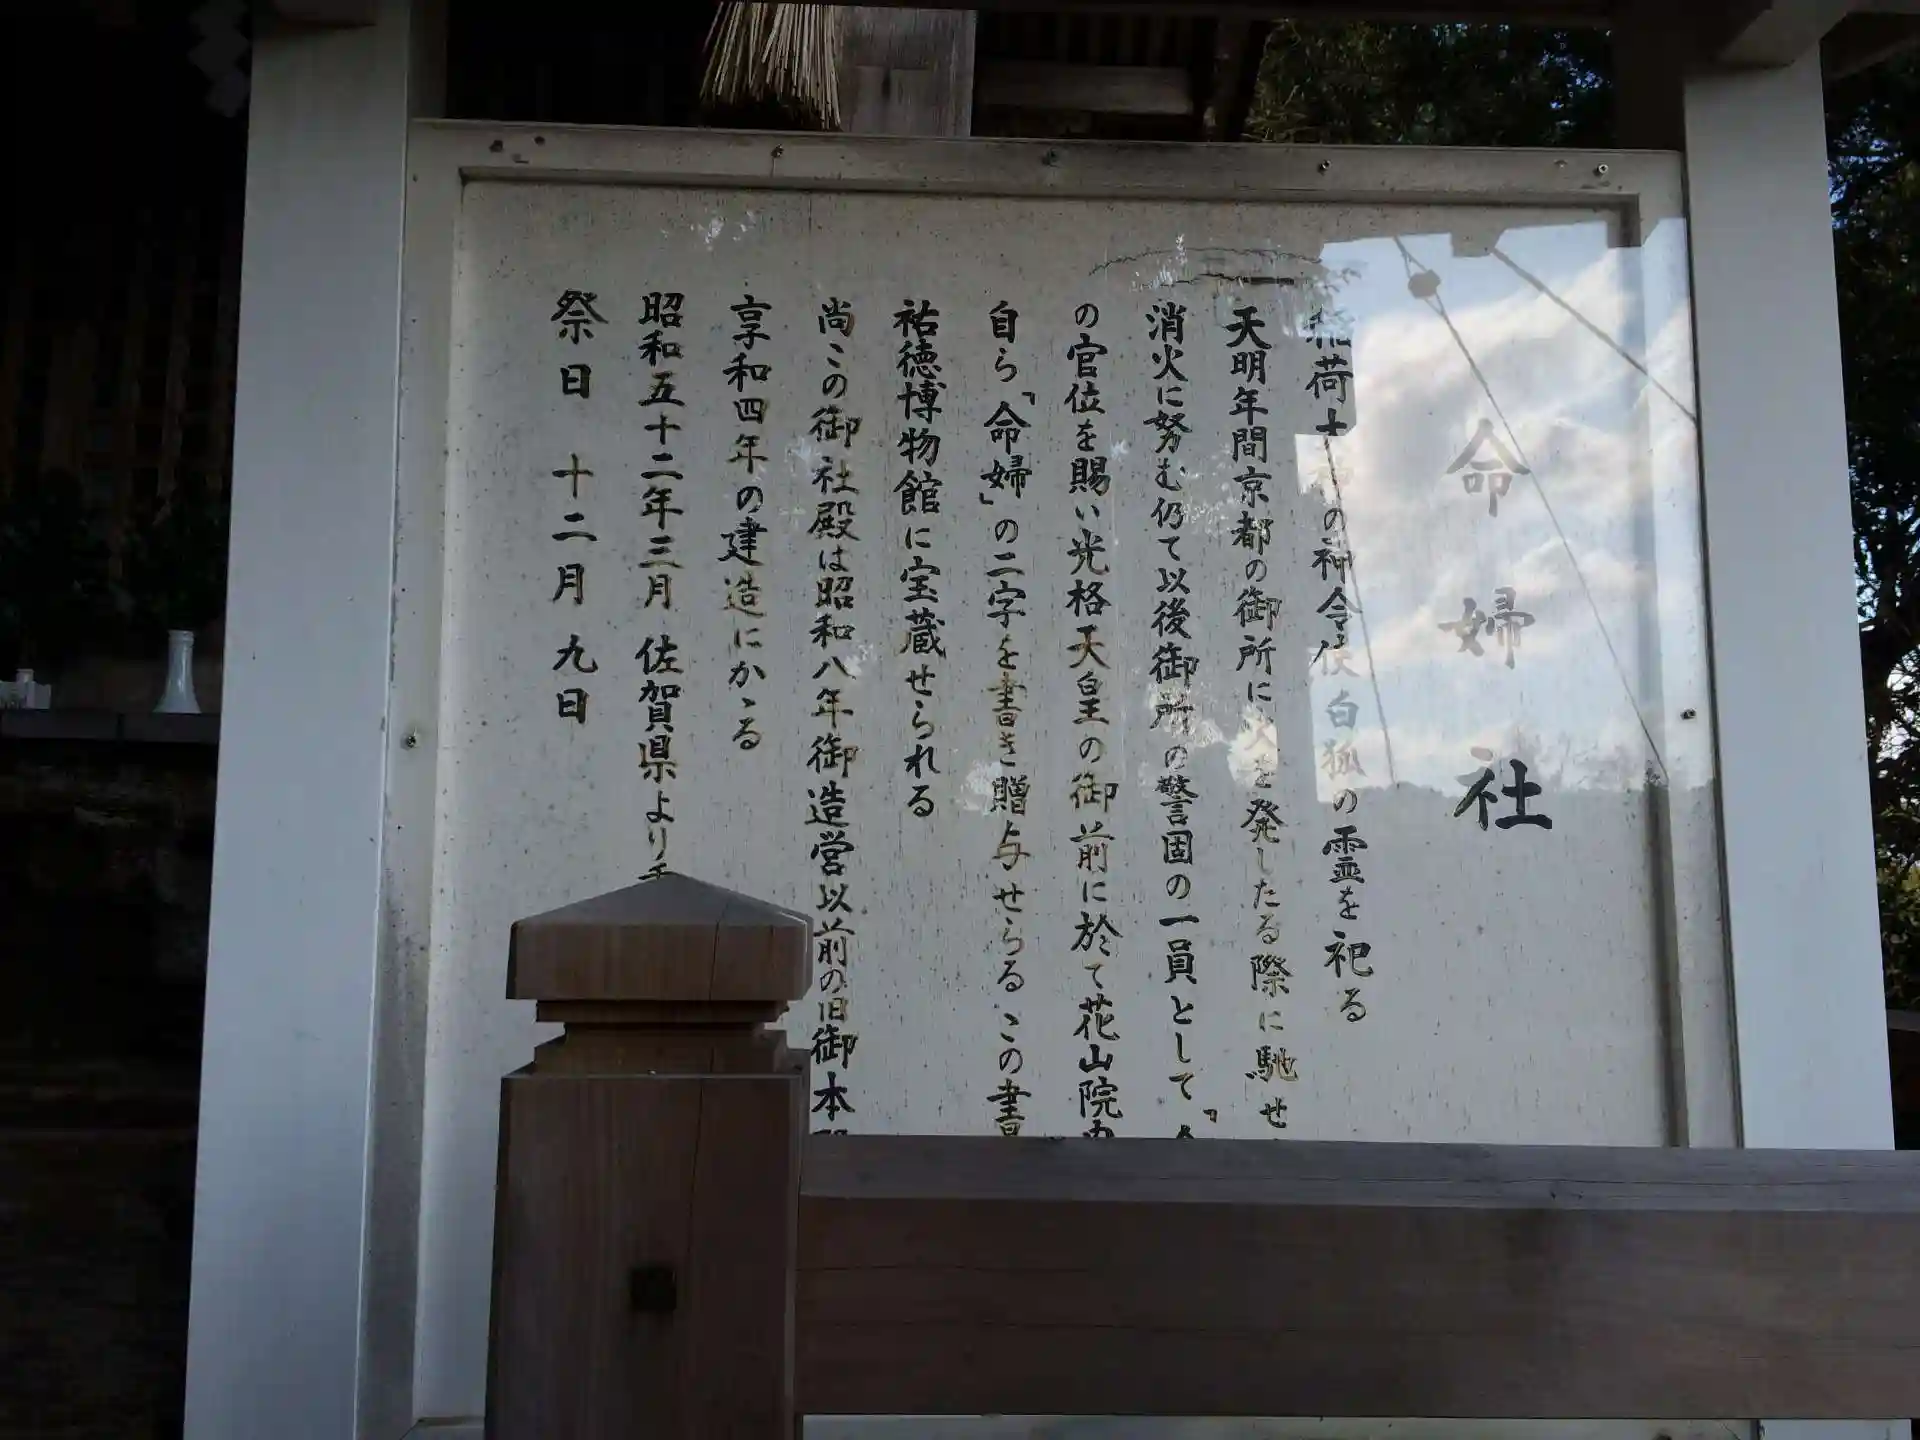 命婦社
稲荷大神の神令使白狐の霊を祀る
天明年間京都の御所に火を発したる際に馳せ
消火に努む仍て以後御所の警固の一員として「命
の官位を賜い光格天皇の御前に於て花山院内
自ら「命婦」の二字を書き贈与せらるこの書
祐徳博物館に宝蔵せられる
尚この御社殿は昭和八年御造営以前の旧御本殿
享和四年の建造にかゝる
昭和五十二年三月佐賀県より
祭日 十二月九日